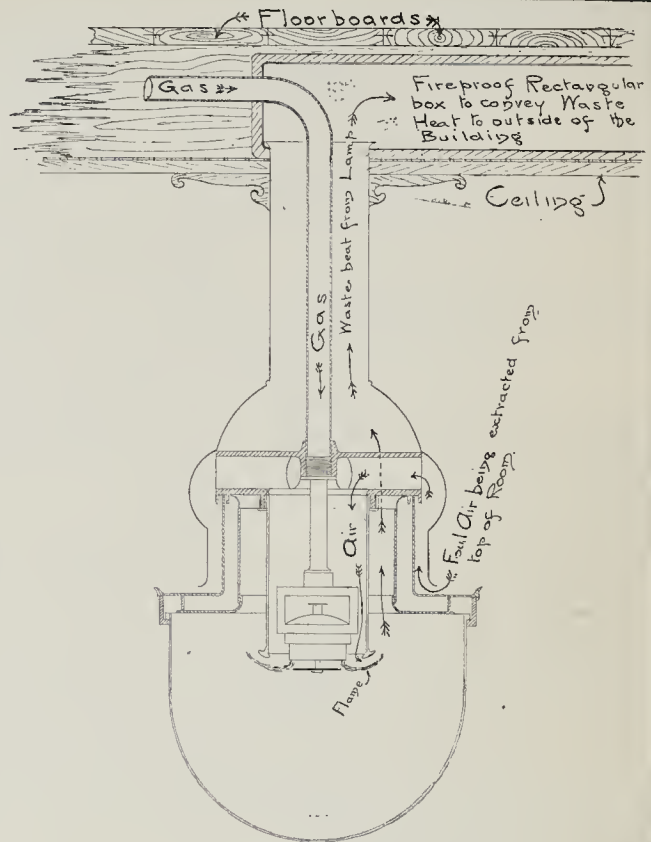 Floorboards
Gas
Fireproof Rectangular
box to convey Waste
Heat to outside of the
Building
Ceiling
Waste heat from Lamp
Gas
Foul Air being extracted from
top of Room
Air
Flame